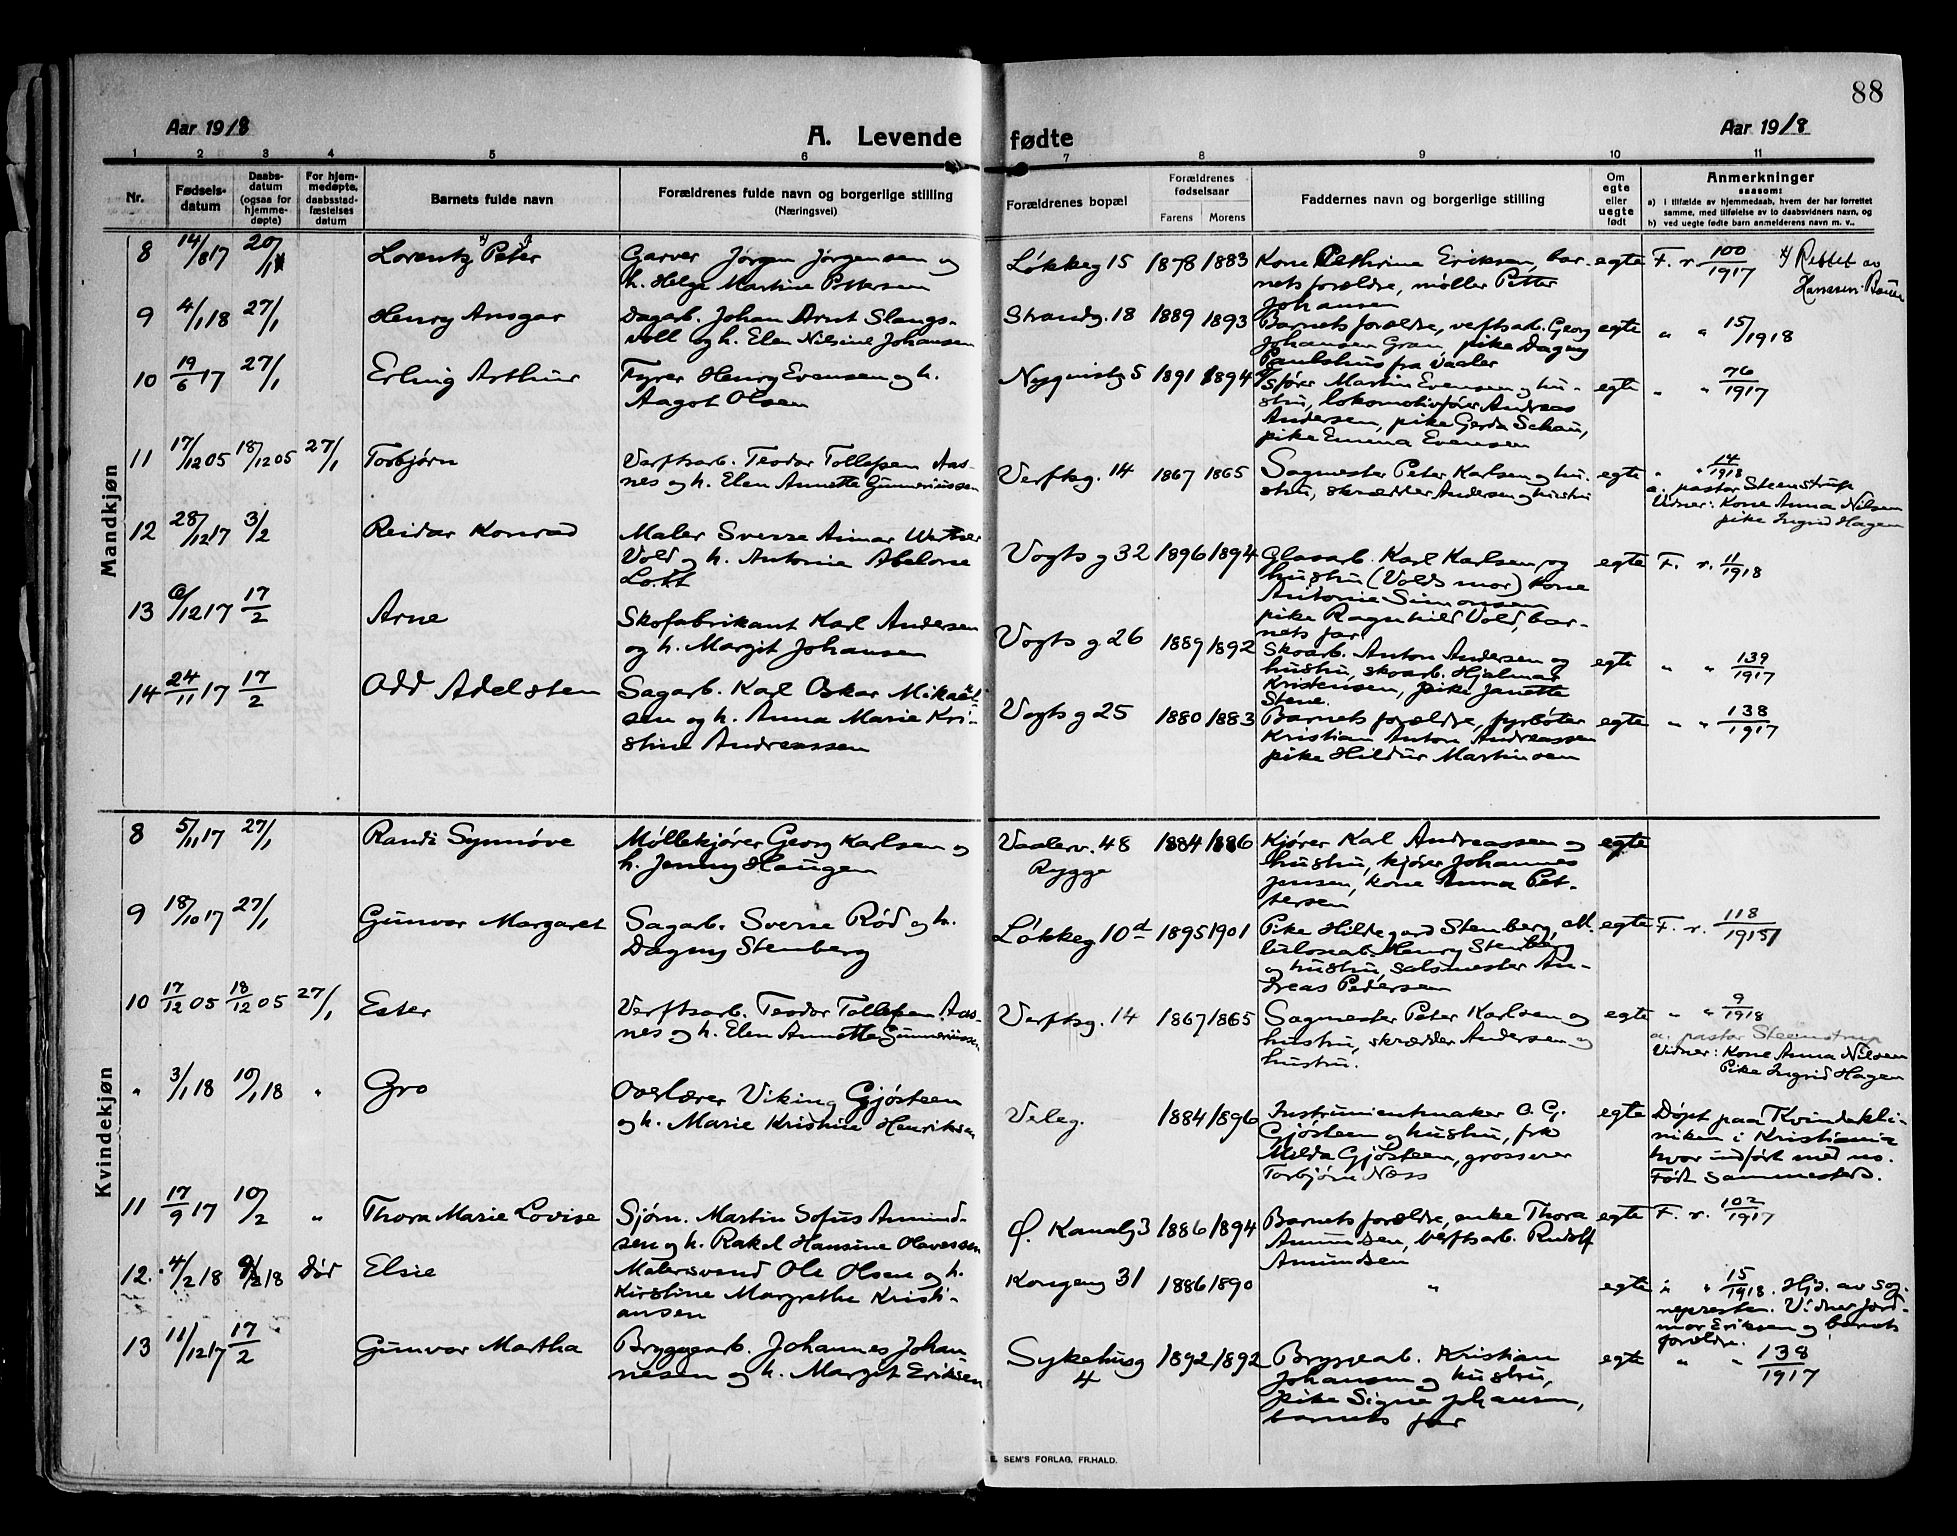 88
Aar 1918
A. Levende fødte
Aar 1918
1 2 3 4 5 6 7 8 9 10 11
Nr.
Fødsels-
datum
Daabs-
datum
(ogsaa for
hjemme-
døpte)
For hjem-
medøpte,
daabsstad-
fæstelses
datum
Barnets fulde navn
Forældrenes fulde navn og borgerlige stilling
(Næringsvei)
Forældrenes bopæl
Forældrenes
fødselsaar
Farens Morens
Faddernes navn og borgerlige stilling
Om
egte
eller
uegte
født
Anmerkninger
saasom:
a) i tilfælde av hjemmedaab, hvem der har forrettet
samme, med tilføielse av to daabsvidners navn, og
b) ved uegte fødte barn anmelderens navn m. v..
Mandkjøn
8 14/8 17 20/1 Lorentz Peter
Garver Jørgen Jørgensen og
h. Helga Martine Pettersen
Løkkeg 15 1878 1883
Kone Pethrine Eriksen, bar-
nets forældre, møller Petter
Johansen
egte F. r. 100/1917
Rettet av
Hanssen-Bauer
9 4/1 18 27/1 Henry Ansgar
Dagarb. Johan Arnt Slangs-
voll og h. Elen Nilsine Johansen
Strandg. 18 1889 1893
Barnets forældre, verftsarb. Georg
Johansen Gran, pike Dagny
Paulshus fra Vaaler
egte " " 15/1918
10 19/6 17 27/1 Erling Arthur
Fyrer Henry Evensen og h.
Aagot Olsen
Nyquistg 5 1891 1894
Martin Evensen og hu-
stru, lokomotivfører Andreas
Andersen, pike Gerda Schau,
pike Emma Evensen
egte " " 76/1917
11 17/12 05 18/12 05 27/1 Torbjørn
Verftsarb. Teodor Tollefsen Aas-
nes og h. Elen Annette Gunneriussen
Verftsg. 14 1867 1865
Sagmester Peter Karlsen og hu-
stru, skrædder Andersen og hustru
egte " " 14/1918
a. pastor Steenstrup
Vidner: Kone Anna Nilsen
pike Ingrid Hagen
12 28/12 17 3/2 Reidar Konrad
Maler Sverre Aimar
Vold og h. Antonie Abelone
Vogts g 32 1896 1894
Glasarb. Karl Karlsen og
hustru (Volds mor) Kone
Antonie Simonsen
pike Ragnhild Vold, bar-
nets far
egte F. r. 11/1918
13 6/12 17 17/2 Arne
Skofabrikant Karl Andersen
og h. Margit Johansen
Vogts g 26 1889 1892
Skoarb. Anton Andersen og
hustru, skoarb. Hjalmar
Kristensen, pike Janette
Stene.
egte " " 139/1917
14 24/11 17 17/2 Odd Adelsten
Sagarb. Karl Oskar Mikael-
sen og h. Anna Marie Kri-
stine Andreassen
Vogts g 25 1880 1883
Barnets forældre, fyrbøter
Kristian Anton Andreassen
pike Hildur Martinsen
egte " " 138/1917
Kvindekjøn
8 5/11 17 27/1 Randi Synnøve
Møllekjører Georg Karlsen og
h. Jenny Haugen
Vaalerv. 48
Rygge
1884 1886
Kjører Karl Andreassen og
hustru, kjører Johannes
Jensen, kone Anna Pet-
tersen
egte
9 18/10 17 27/1 Gunvor Margaret
Sagarb. Sverre Rød og h.
Dagny Stenberg
Løkkeg 10d 1895 1901
Pike Hildegard Stenberg, cel-
lulosearb. Henry Stenberg
og hustru, salsmester An-
dreas Pedersen
egte F. r. 118/1915
10 17/12 05 18/12 05 27/1 Ester
Verftsarb. Teodor Tollefsen Aas-
nes og h. Elen Annette Gunneriussen
Verftsg. 14 1867 1865
Sagmester Peter Karlsen og
hustru, skrædder Andersen og
hustru.
egte " " 9/1918
a. pastor Steenstrup
Vidner: Kone Anna Nilsen
Pike Ingrid Hagen
" 3/1 18 10/1 18 " Gro
Overlærer Viking Gjøsteen
og h. Marie Kristine Henriksen
Veleg. 1884 1896
Instrumentmaker O. G.
Gjøsteen og hustru, frk
Milda Gjøsteen, grosserer
Torbjørn Næss
egte
Døpt paa Kvindekli-
niken i Kristiania
hvor indført med no.
Født sammesteds.
11 17/9 17 10/2 " Thora Marie Lovise
Sjøm. Martin Sofus Amund-
sen og h. Rakel Hansine Olavessen
Ø. Kanalg 3 1886 1894
Barnets forældre, enke Thora
Amundsen, verftsarb. Rudolf
Amundsen
egte F. r. 102/1917
12. 4/2 18 9/2 18 Død Elsie
Malersvend Ole Olsen og h.
Kirstine Margrethe Kristi-
ansen
Kongeng 31 1886 1890 " egte
" " 15/1918. Hjd. av sog-
nepresten. Vidner jord-
mor Eriksen og barnets
forældre.
13 11/12 17 17/2 Gunvor Martha
Bryggearb. Johannes Johan-
nesen og h. Margit Eriksen
Sykehusg
4
1892 1892
Bryggearb. Kristian
Johansen og hustru,
pike Signe Johansen,
barnets far
egte " " 138/1917
E. SEM'S FORLAG, FR.HALD.